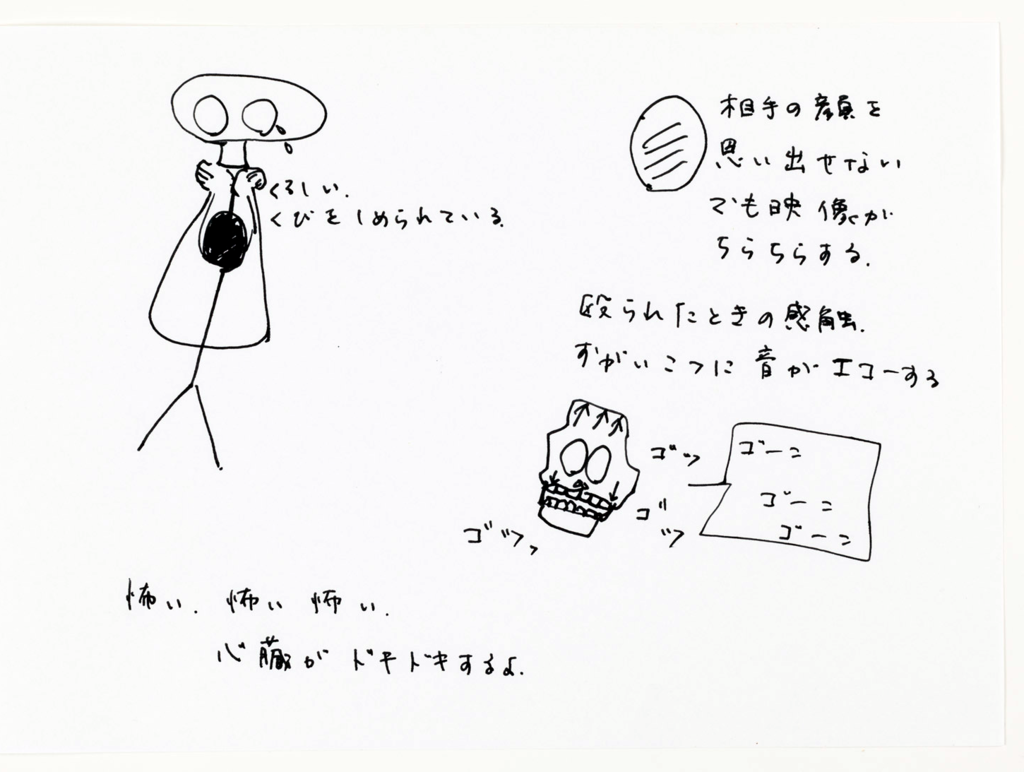 くるしい.
くびをしめられている.
相手の顔を
思い出せない
でも映像が
ちらちらする.
殴られたときの感触.
ずがいこつに音がエコーする
ゴッ
ゴーン
ゴーン
ゴッ
ゴーン
ゴッ,
怖い. 怖い 怖い.
心臓がドキドキするよ.